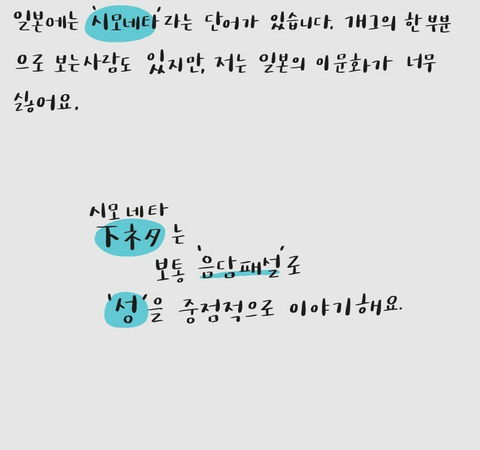 일본에는 '시모네타'라는 단어가 있습니다. 개그의 한 부분
으로 보는사람도 있지만, 저는 일본의 이문화가 너무
싫어요.
시모네타
下ネタ는
보통 '음담패설'로
'성'을 중점적으로 이야기해요.